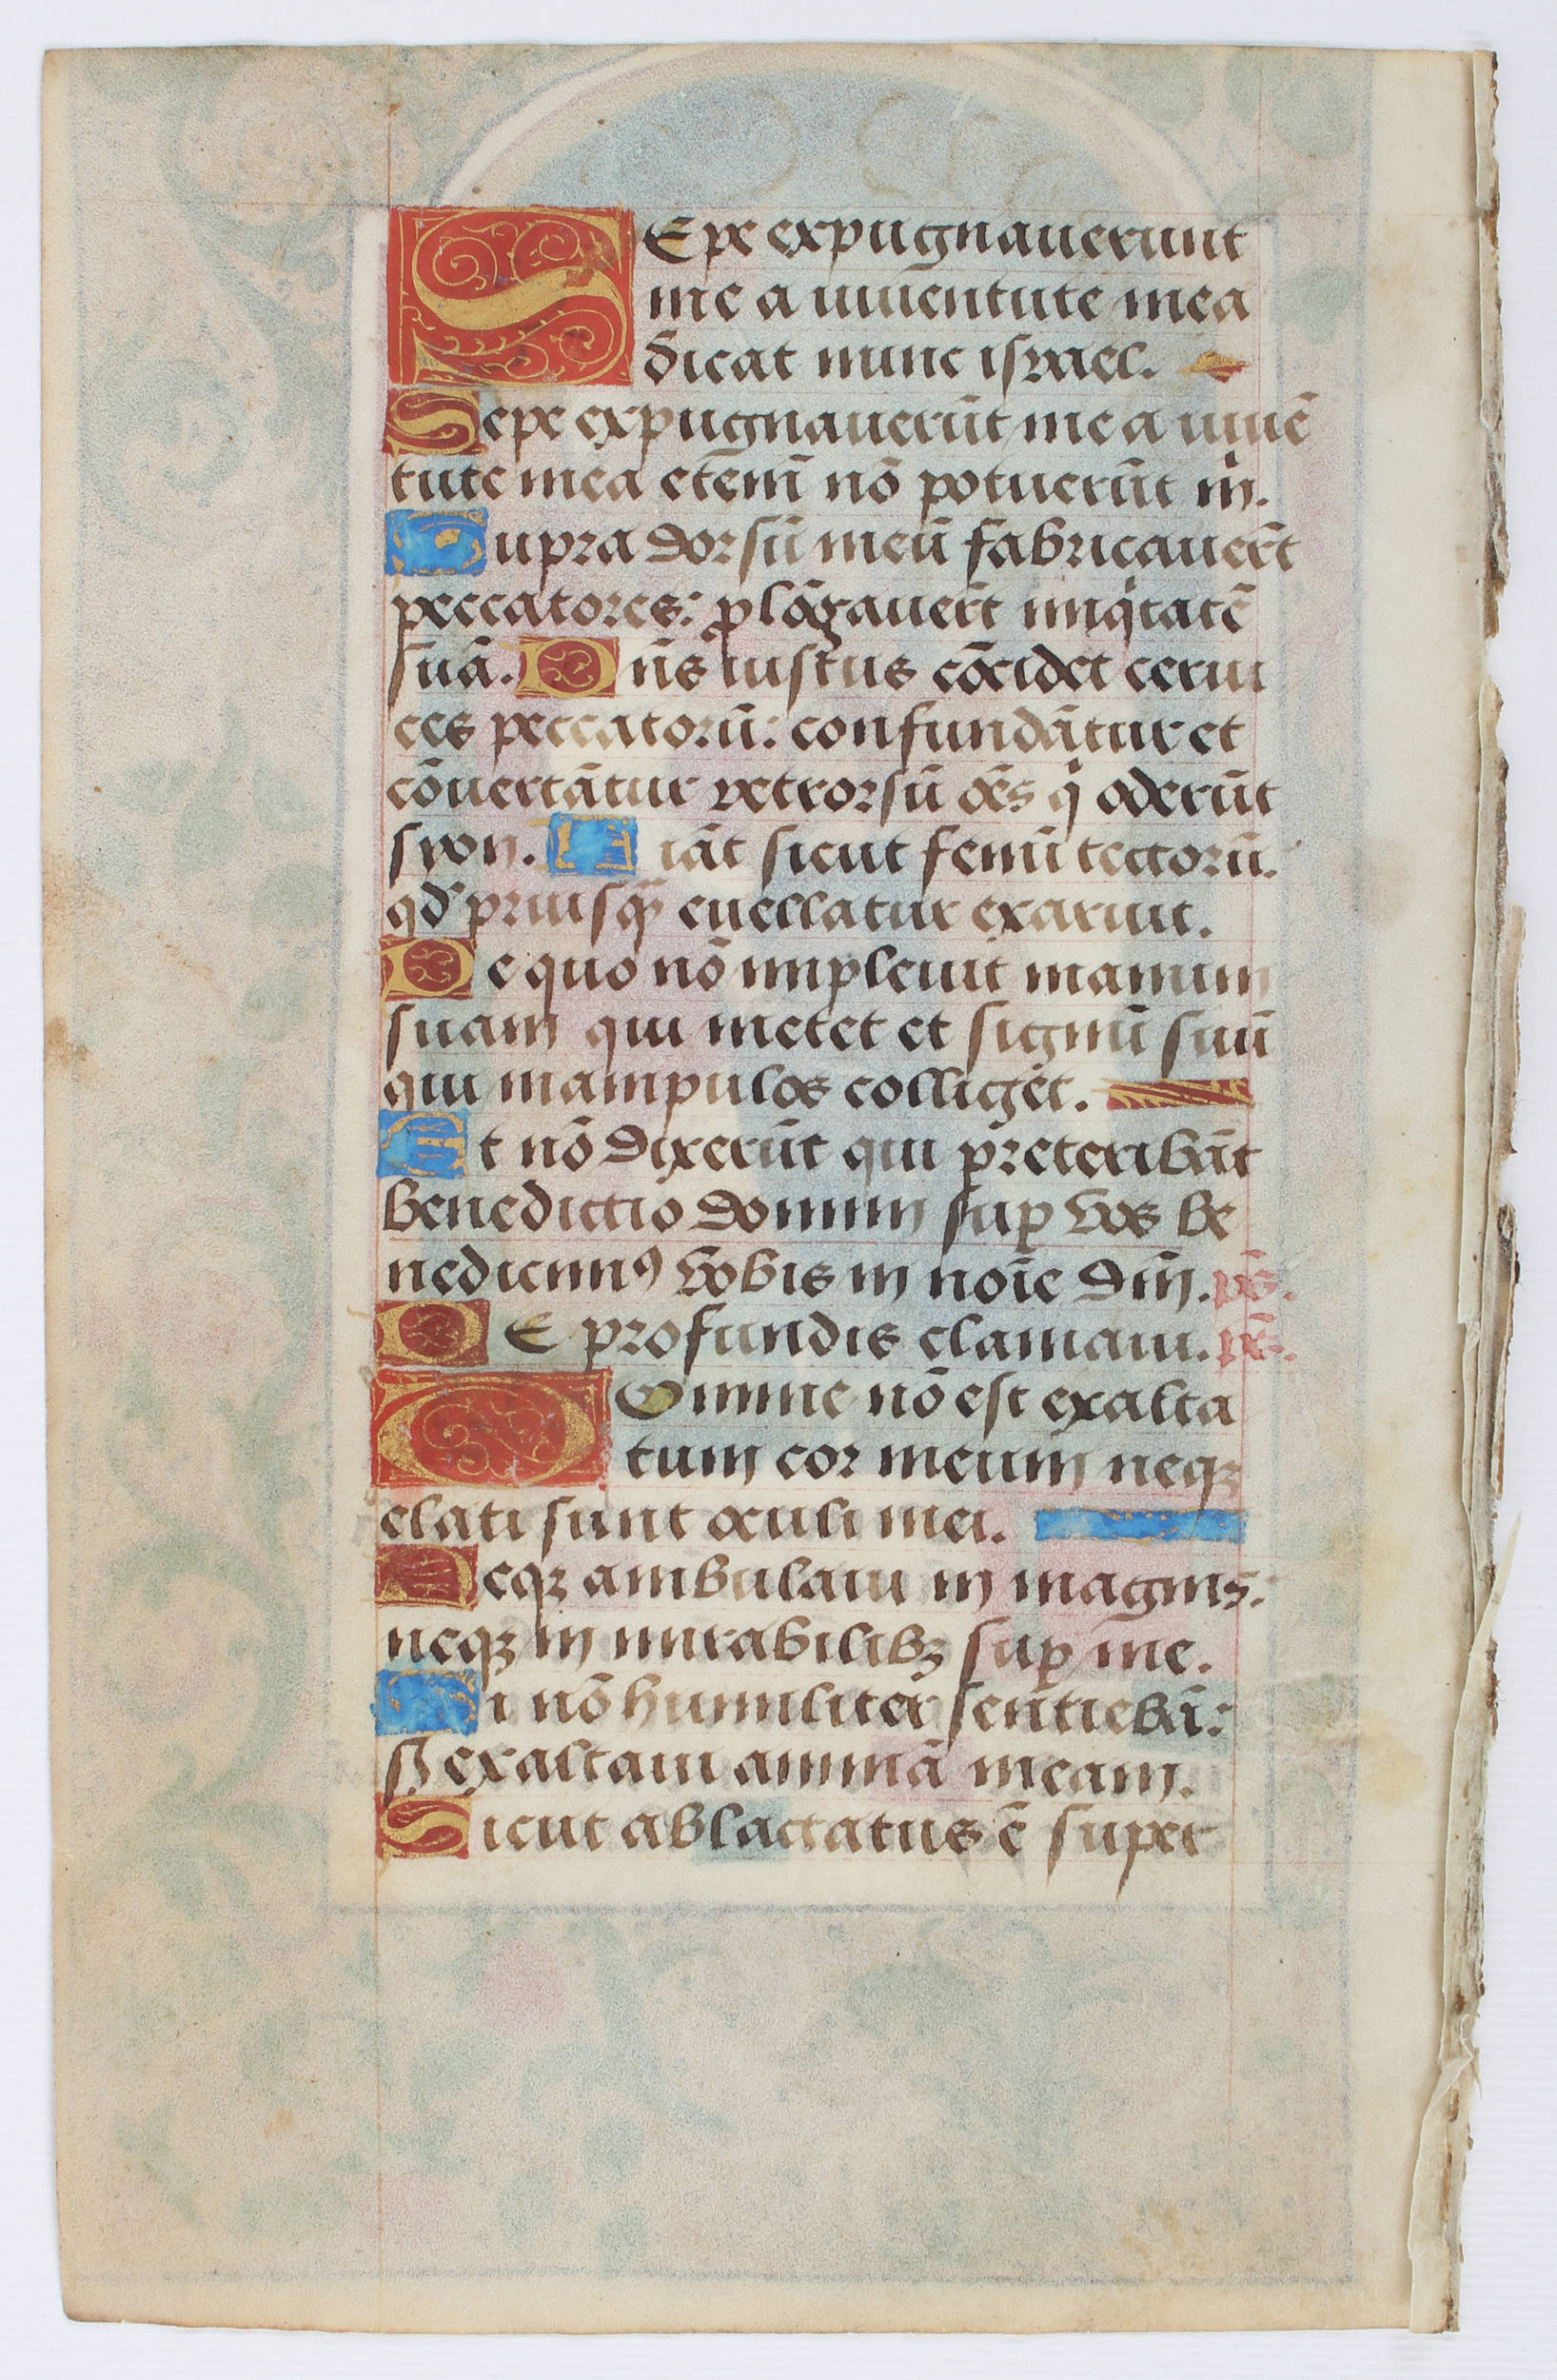 SEpe expugnauerunt
me a iuuentute mea
dicat nunc israel.
Sepe expugnauerūt me a iuuē
tute mea eteni̅ nō potuerūt m̊.
Supra dorsū meū fabricauer̄t
peccatores: ꝓlōgauer̄t iniqͥtatē
suā. Dn̄s iustus cōcidet cerui
ces peccatorū: confundātur et
cōuertātur retrorsū oēs qͥ oderūt
syon. Fiāt sicut fenū tectorū.
qd' priusqꝫ euellatur exaruit.
De quo nō impleuit manum
suam qui metet et signū suū
qui manipulos colliget.
Et nō dixerūt qui preteribāt
benedictio domini suꝑ vos be
nedicimꝰ vobis in noīe dn̄i. ps̄.
DE profundis clamaui. ps̄.
DOmine nō est exalta
tum cor meum neqꝫ
elati sunt oculi mei.
Neqꝫ ambulaui in magnis:
neqꝫ in mirabilibꝫ suꝑ me.
Si nō humiliter sentiebā:
sꝫ exaltaui animā meam.
Sicut ablactatus ē super